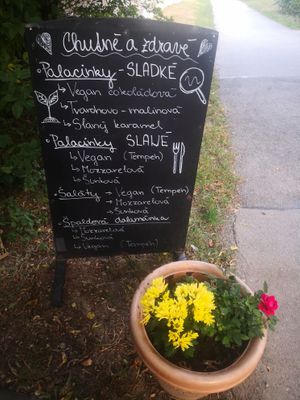 Chutné a zdravé
• Palacinky - SLADKÉ
↳ Vegan čokoládová
↳ Tvarohovo - malinová
↳ Slaný karamel
• Palacinky SLANÉ
↳ Vegan (Tempeh)
↳ Mozzarelová
↳ Šunková
• Šaláty → Vegan (Tempeh)
↳ Mozzarelová
↳ Šunková
• Špaldová dalamánka
↳ Mozzarelová
↳ Šunková
↳ Vegan (Tempeh)